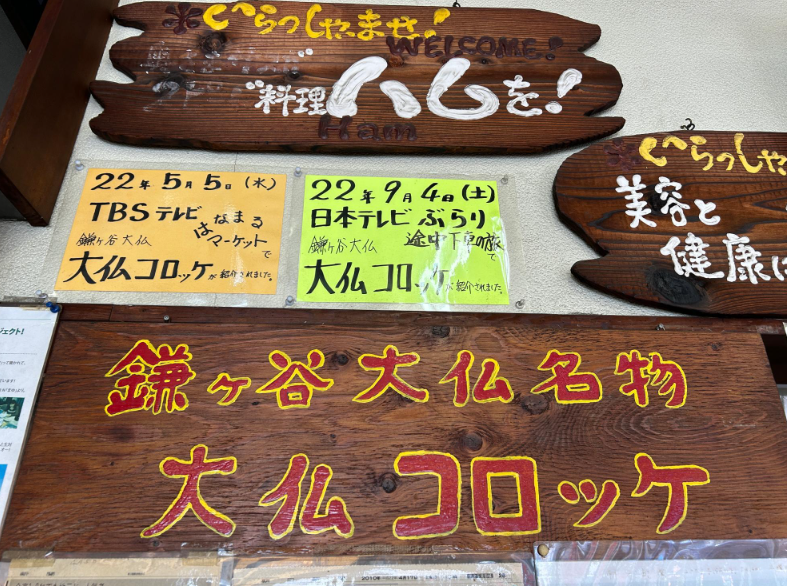 いらっしゃいませ!
WELCOME!
"料理ハムを!
Ham
いらっしゃ
美容と
健康に
22年5月5日(水)
TBSテレビ
はなまる
マーケット
で
鎌ヶ谷大仏
大仏コロッケが紹介されました。
22年9月4日(土)
日本テレビ ぶらり
途中下車の旅
で
鎌ヶ谷大仏
大仏コロッケが紹介されました。
鎌ヶ谷大仏名物
大仏コロッケ
ジェクト!